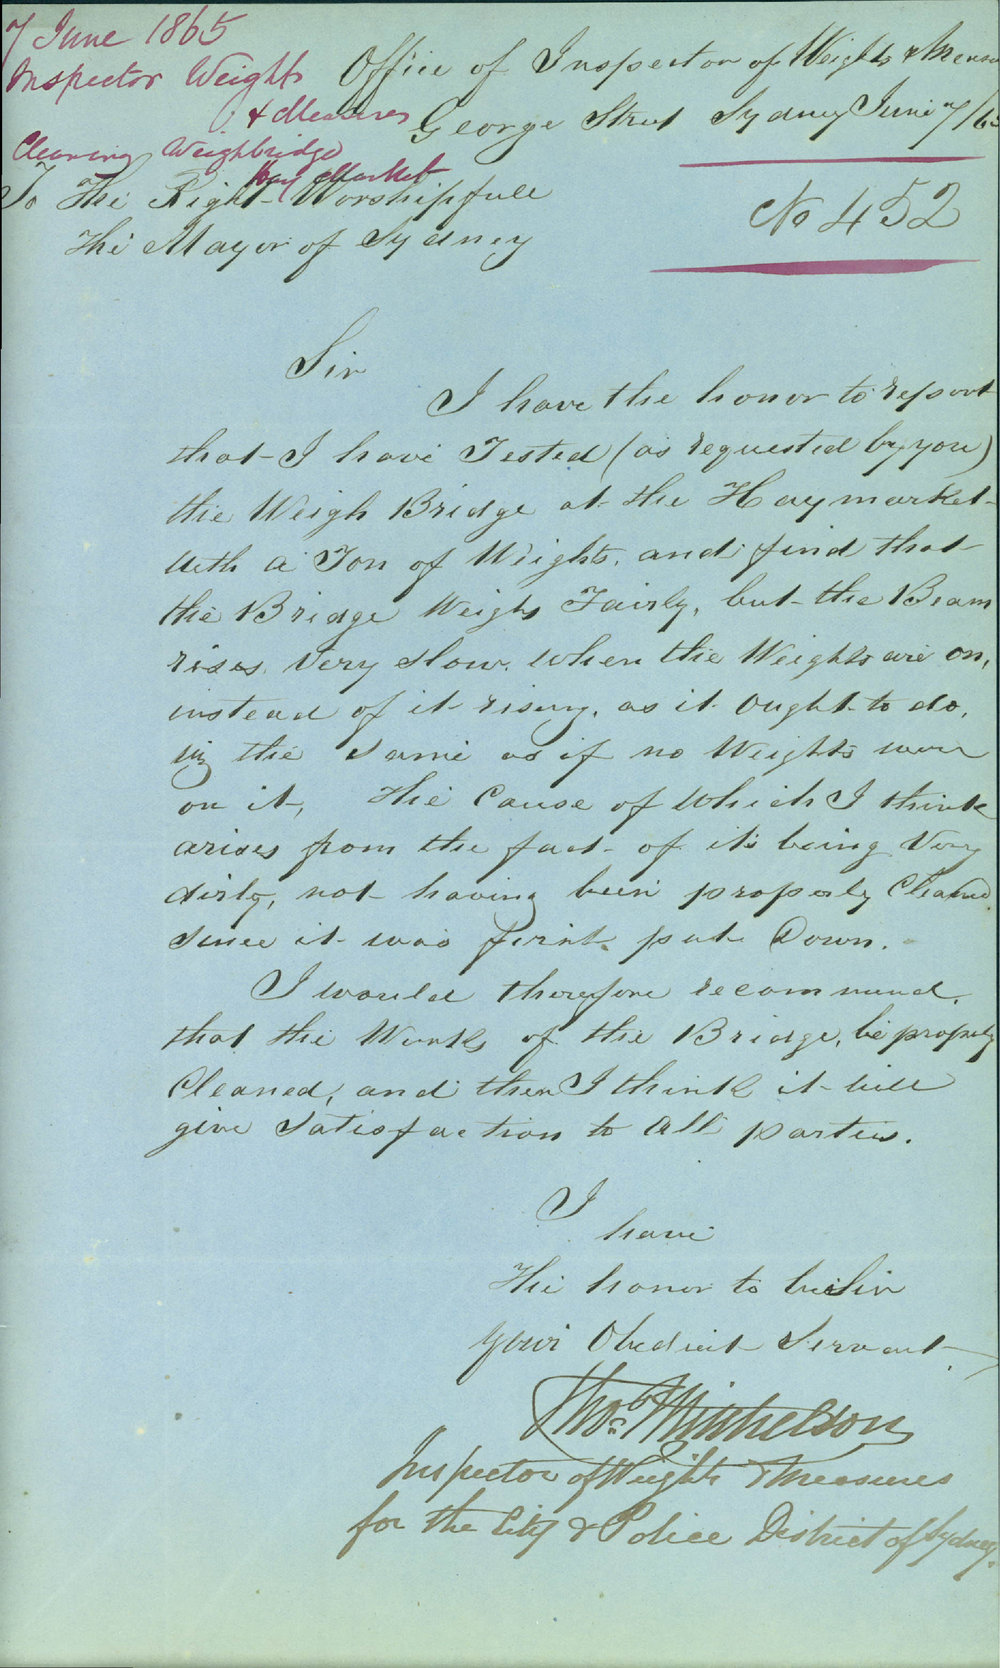 7 June 1865
Inspector Weights
& Measures
Cleaning Weighbridge
Hay Market
Office of Inspector of Weights & Measu
George Street Sydney June 7/65
No 452
To The Right Worshipfull
The Mayor of Sydney
Sir
I have the honor to report
that I have Tested (as requested by you)
the Weigh Bridge at the Haymarket
with a Ton of Weights, and find that
the Bridge Weighs Fairly, but the Beam
rises Very slow when the Weights are on,
instead of it rising, as it ought to do,
viz the same as if no Weights were
on it, The Cause of which I think
arises from the fact of its being Very
dirty, not having been properly Cleaned
since it was first put Down.
I would therefore recommend.
that the Works of the Bridge, be properly
Cleaned, and then I think it will
give Satisfaction to All parties.
I
have
The honor to be Sir
Your Obedient Servant
Thos
Inspector of Weights & Measures
for the City & Police District of Sydney.